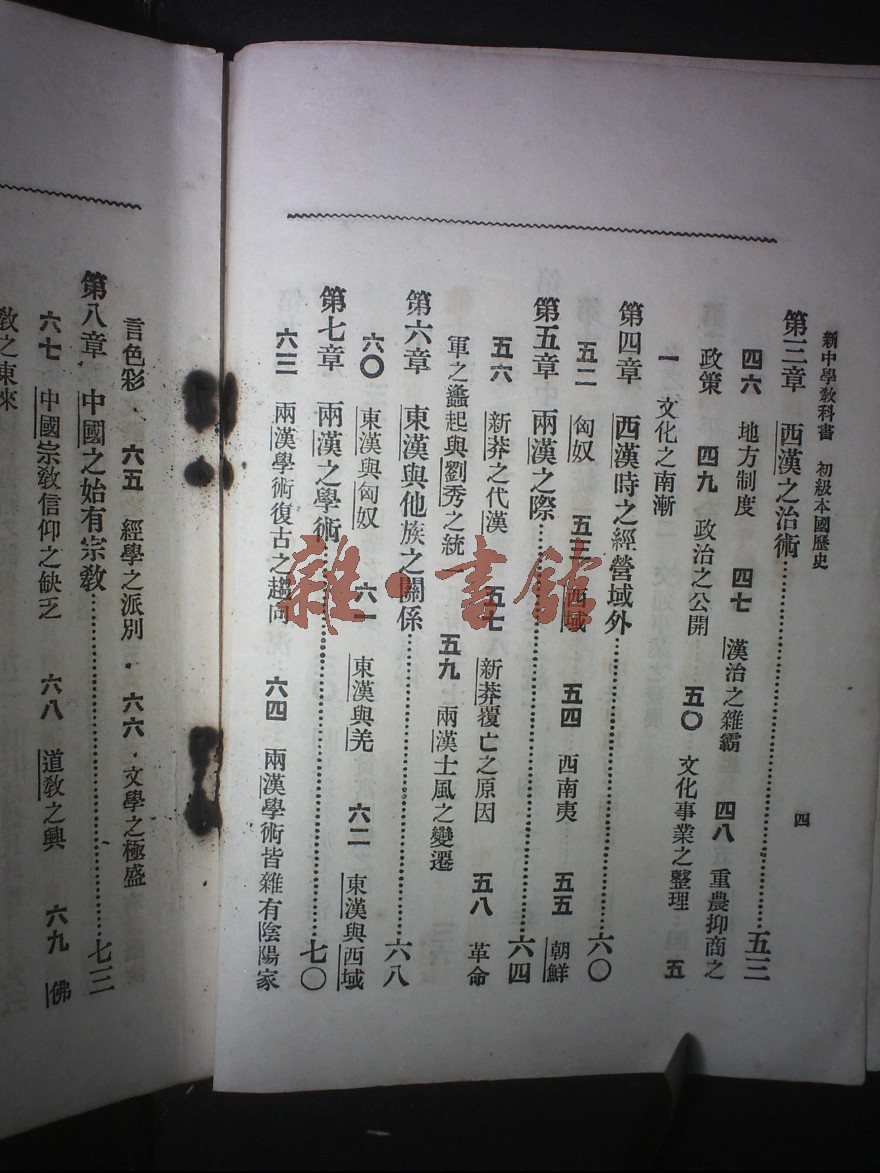 新中學教科書　初級本國歷史
四
第三章　西漢之治術……五三
四六　地方制度　四七　漢治之雜霸　四八　重農抑商之
政策　四九　政治之公開　五〇　文化事業之整理　五
一　文化之南漸
第四章　西漢時之經營域外……六〇
五二　匈奴　五三　西域　五四　西南夷　五五　朝鮮
第五章　兩漢之際……六四
五六　新莽之代漢　五七　新莽覆亡之原因　五八　革命
軍之蠭起與劉秀之統一　五九　兩漢士風之變遷
第六章　東漢與他族之關係……六八
六〇　東漢與匈奴　六一　東漢與羌　六二　東漢與西域
第七章　兩漢之學術……七〇
六三　兩漢學術復古之趨向　六四　兩漢學術皆雜有陰陽家
言色彩　六五　經學之派別　六六　文學之極盛
第八章　中國之始有宗教……七三
六七　中國宗教信仰之缺乏　六八　道教之興　六九　佛
教之東來
雜·書館